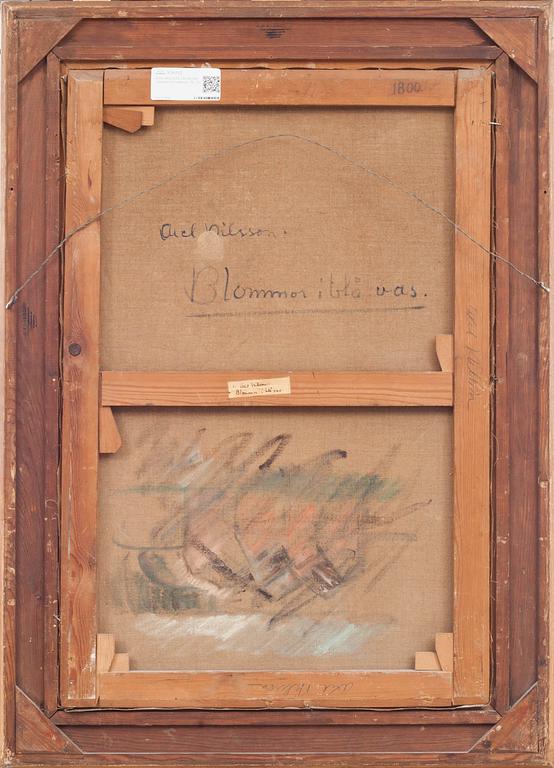 1800
Axel Nilsson.
Blommor i blå vas.
Axel Nilsson
Blommor i blå vas
Axel Nilsson